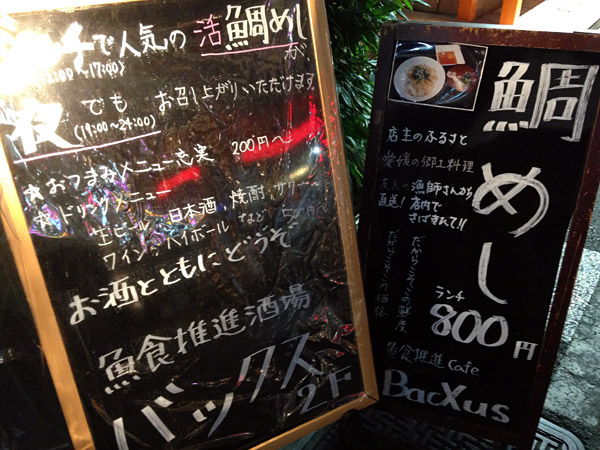 ンチで人気の 活鯛めし が、
~17:00)
夜 でも お召し上がりいただけます
(19:00~24:00)
★おつまみメニュー充実 200円〜
★ドリンクメニュー
生ビール、日本酒、焼酎、サワー
ワイン、ハイボール など
お酒とともにどうぞ
魚食推進酒場
バックス
2F
鯛めし
店主のふるさと
愛媛の郷土料理
友人の漁師さんから
直送!店内で
さばきたて!!
だからこその鮮度
だからこその価格
ランチ
800円
魚食推進 Cafe
BacXus